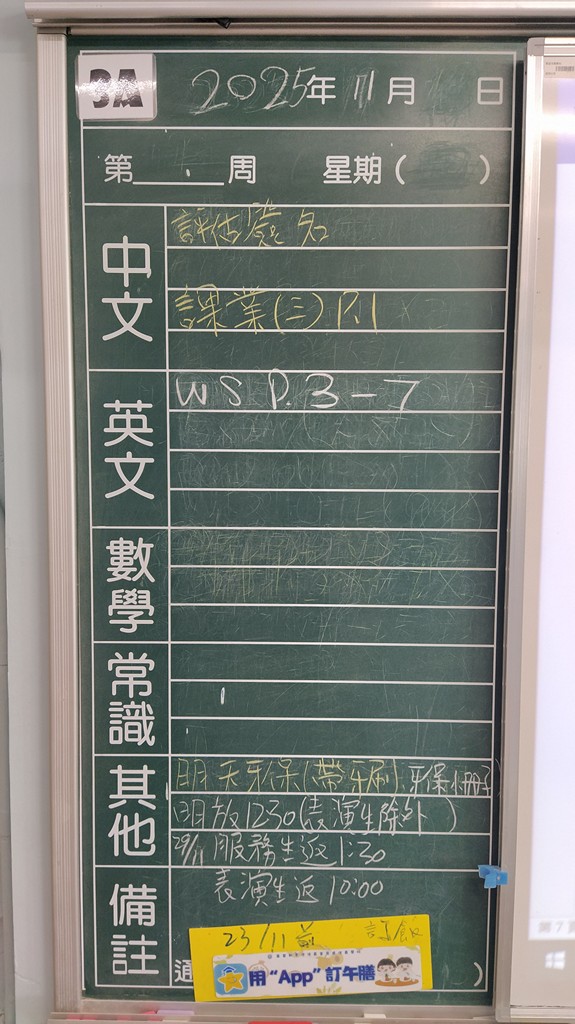 3A 2025年11月 日
第 周 星期( )
中文
評估簽名
課業(三)P.1
英文
WS P.3-7
數學
常識
其他
明天牙保(帶牙刷)、牙保小冊子
明放1230(表演生除外)
29/11 服務生返1:30
備註
表演生返10:00
23/11前 訂飯
通
用“App”訂午膳
)
第 7